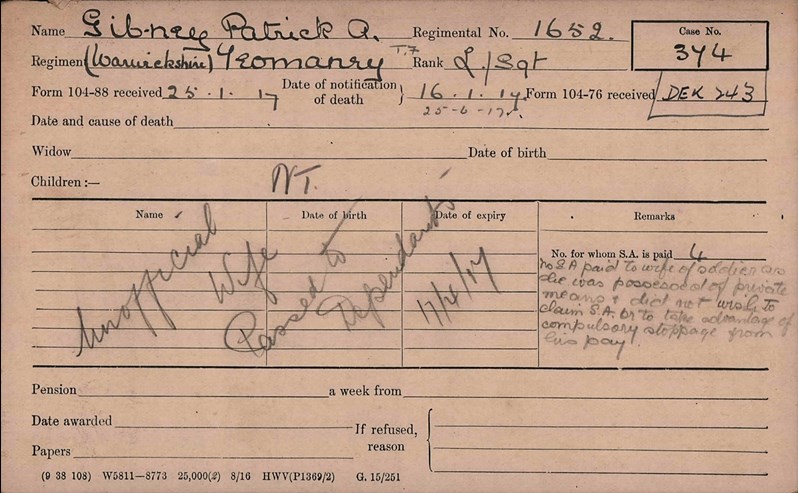 Name Gibney Patrick A. Regimental No. 1652. Case No.
374
Regimen (Warwickshire) Yeomanry T.F. Rank L/Sgt
Form 104-88 received 25.1.17 Date of notification of death } 16.1.17. Form 104-76 received DEK 243
25-6-17.
Date and cause of death
Widow Date of birth
Children:— NT.
Name Date of birth Date of expiry Remarks
Unofficial Wife
Passed to Dependants
17/4/17
No. for whom S.A. is paid 4
No S.A paid to wife of soldier as
she was possessed of private
means & did not wish to
claim S.A. or to take advantage of
compulsory stoppage from
his pay.
Pension a week from
Date awarded If refused,
Papers reason
(9 38 108) W5811—8773 25,000(2) 8/16 HWV(P1369/2) G. 15/251